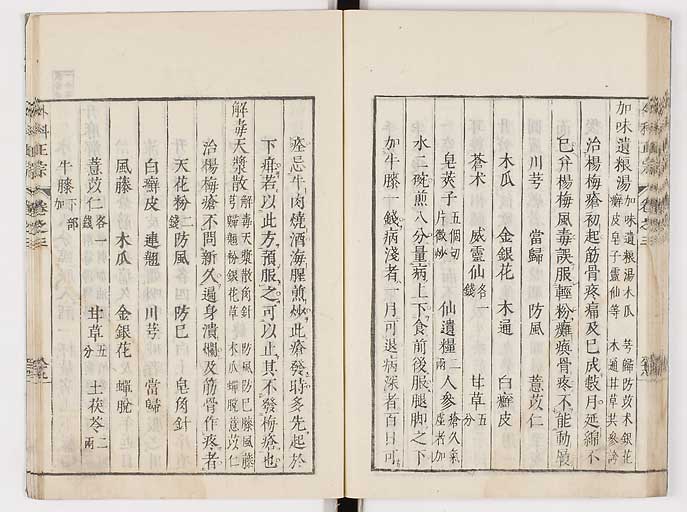 加味遺粮湯 加味遺粮湯木瓜 芎歸防苡术銀花
癬皮皂子靈仙等 木通甘草共參滂
治楊梅瘡初起筋骨疼痛及已成數月延綿不
已并楊梅風毒誤服輕粉癱瘓骨疼不能動履
川芎 當歸 防風 薏苡仁
木瓜 金銀花 木通 白癬皮
蒼术 威靈仙各一錢 甘草五分
皂莢子五個切片微炒 仙遺糧二兩 人參瘡久氣虛者加
水二碗煎八分量病上下食前後服腿脚之下
加牛膝一錢病淺者一月可退病深者百日可
瘥忌牛肉燒酒海腥煎炒此瘡發時多先起於
下疳若以此方預服之可以止其不發梅瘡也
解毒天漿散 解毒天漿散角針 防風防巳藤風藤
芎歸翹粉銀花草 木瓜蟬脫意苡仁
治楊梅瘡不問新久遍身潰爛及筋骨作疼者
天花粉二錢 防風 防巳 皂角針
白癬皮 連翹 川芎 當歸
風藤 木瓜 金銀花 蟬脫
薏苡仁各一錢 甘草五分 土茯苓二兩
牛膝下部加
外科正宗 卷之三
外科正宗 卷之三